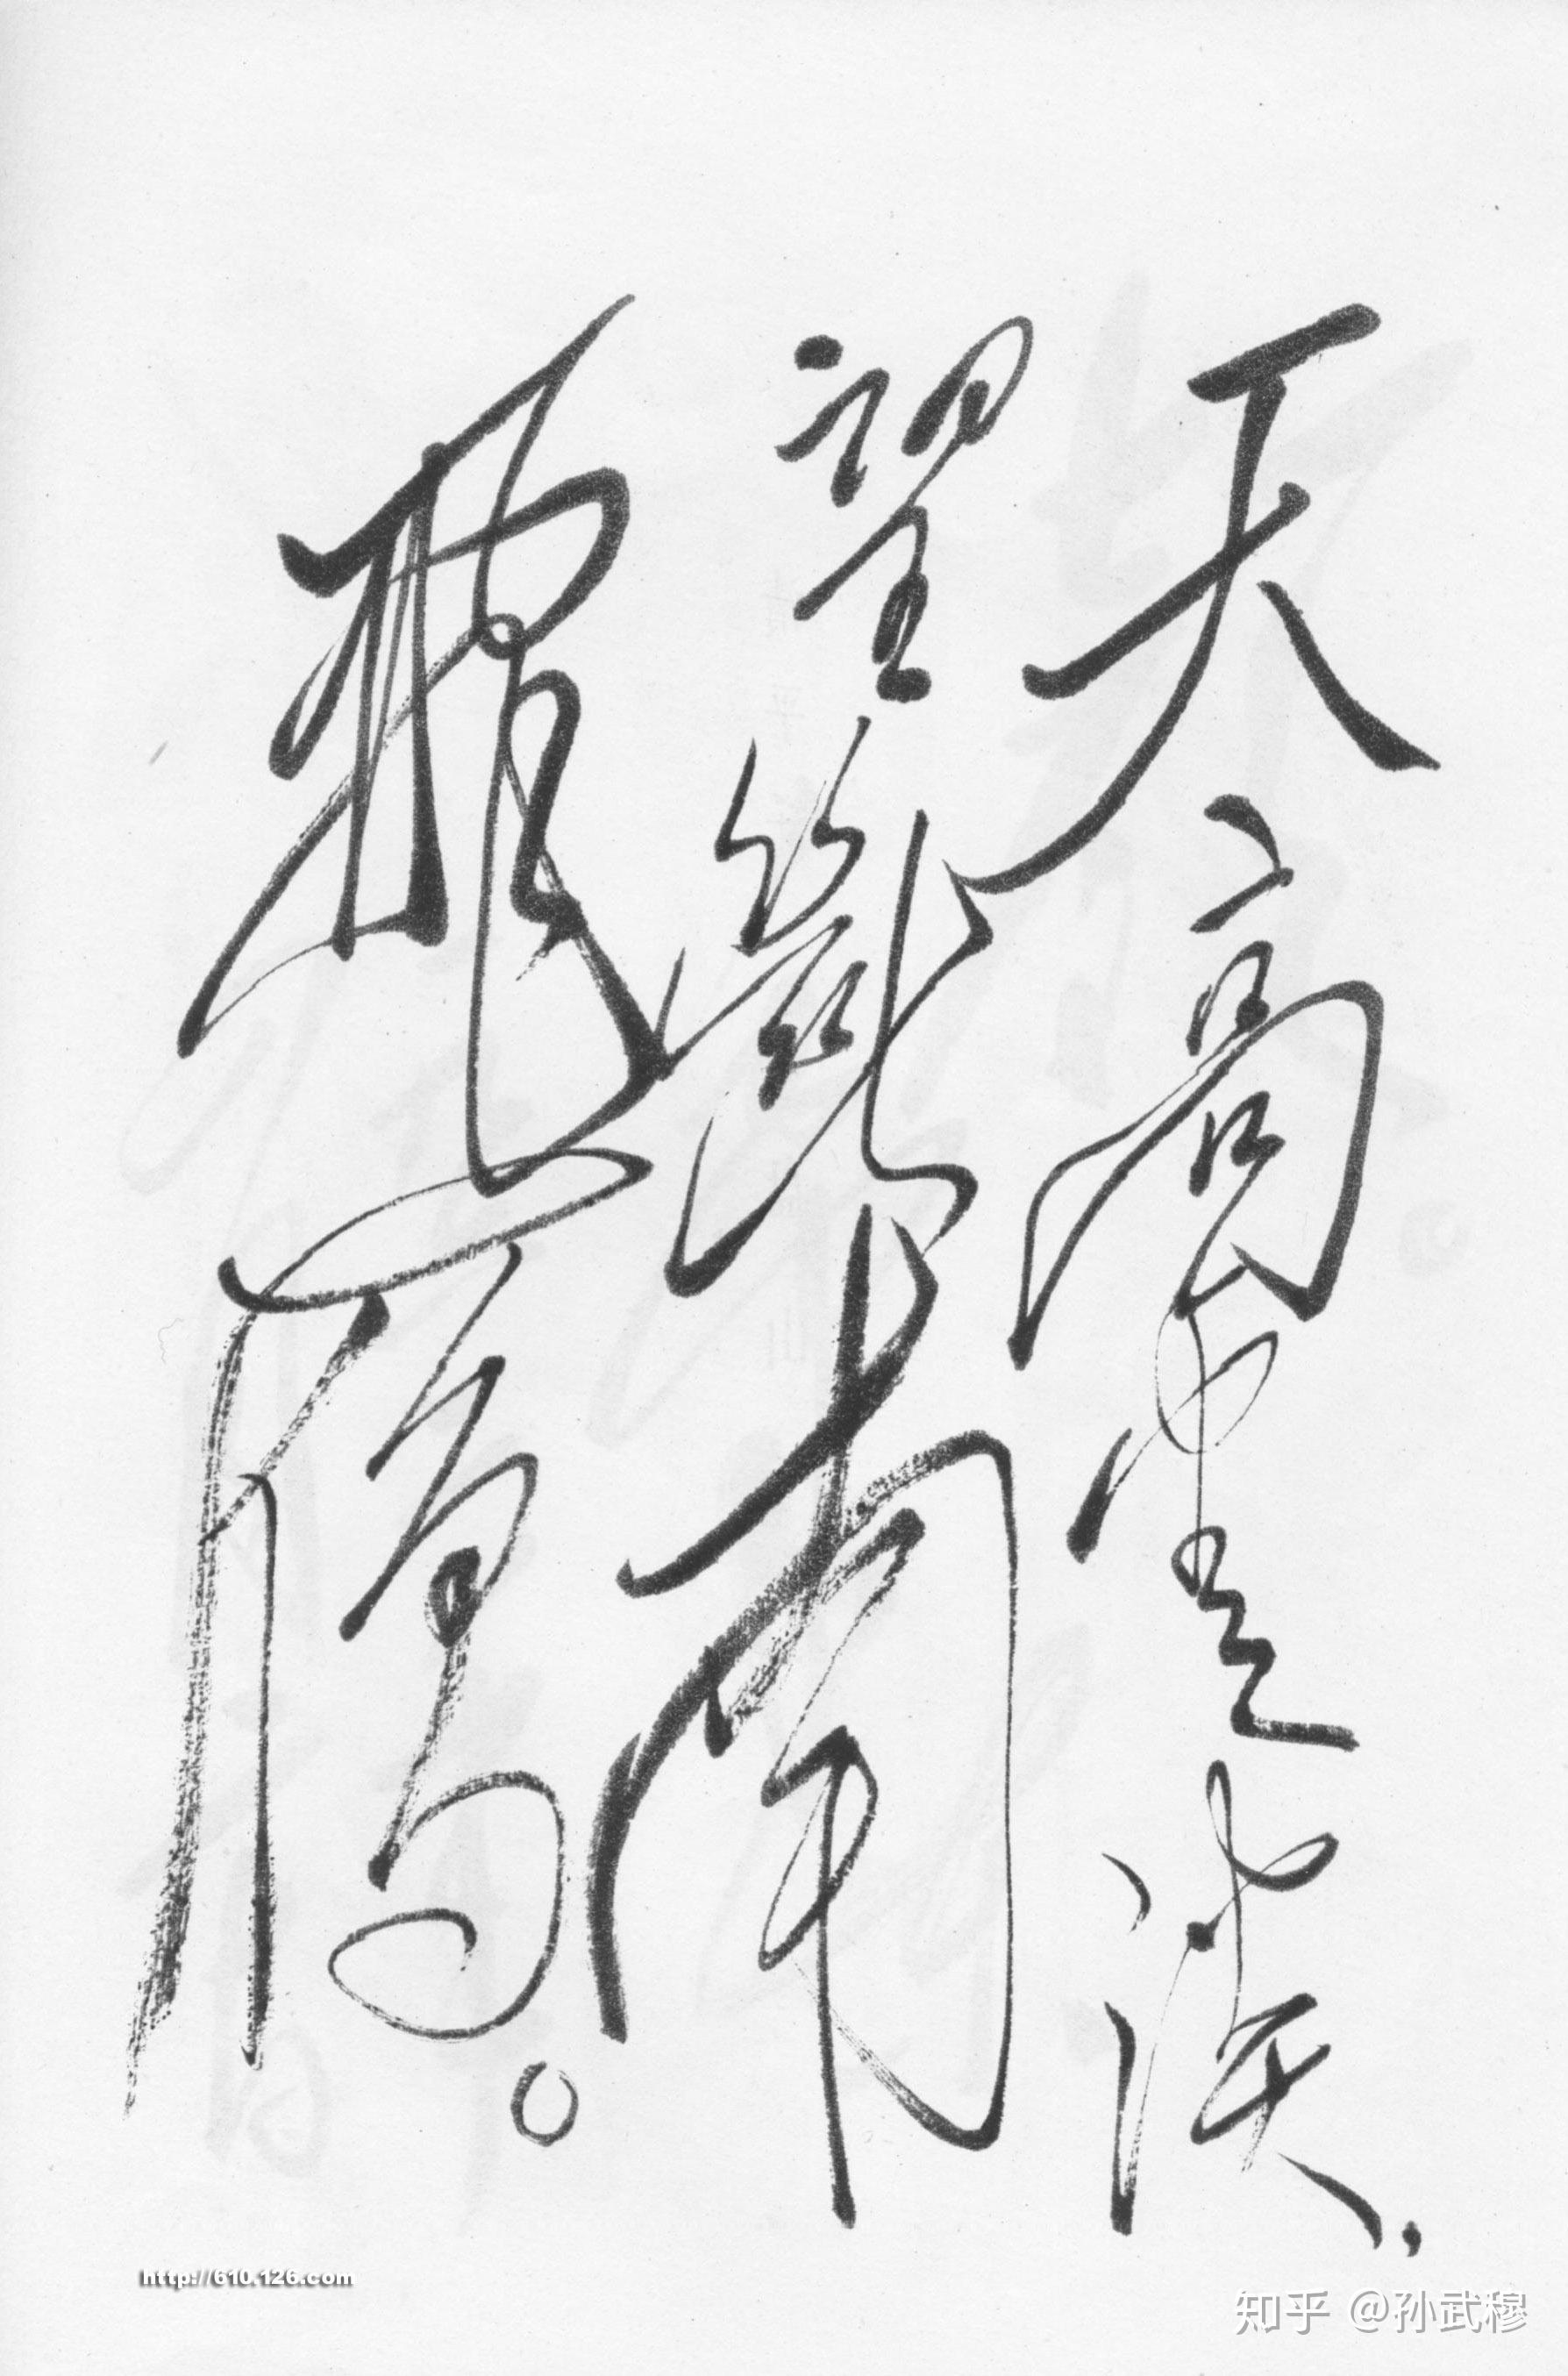 天高雲淡，
望斷南
飛雁。
http://610.126.com
知乎 @孙武穆